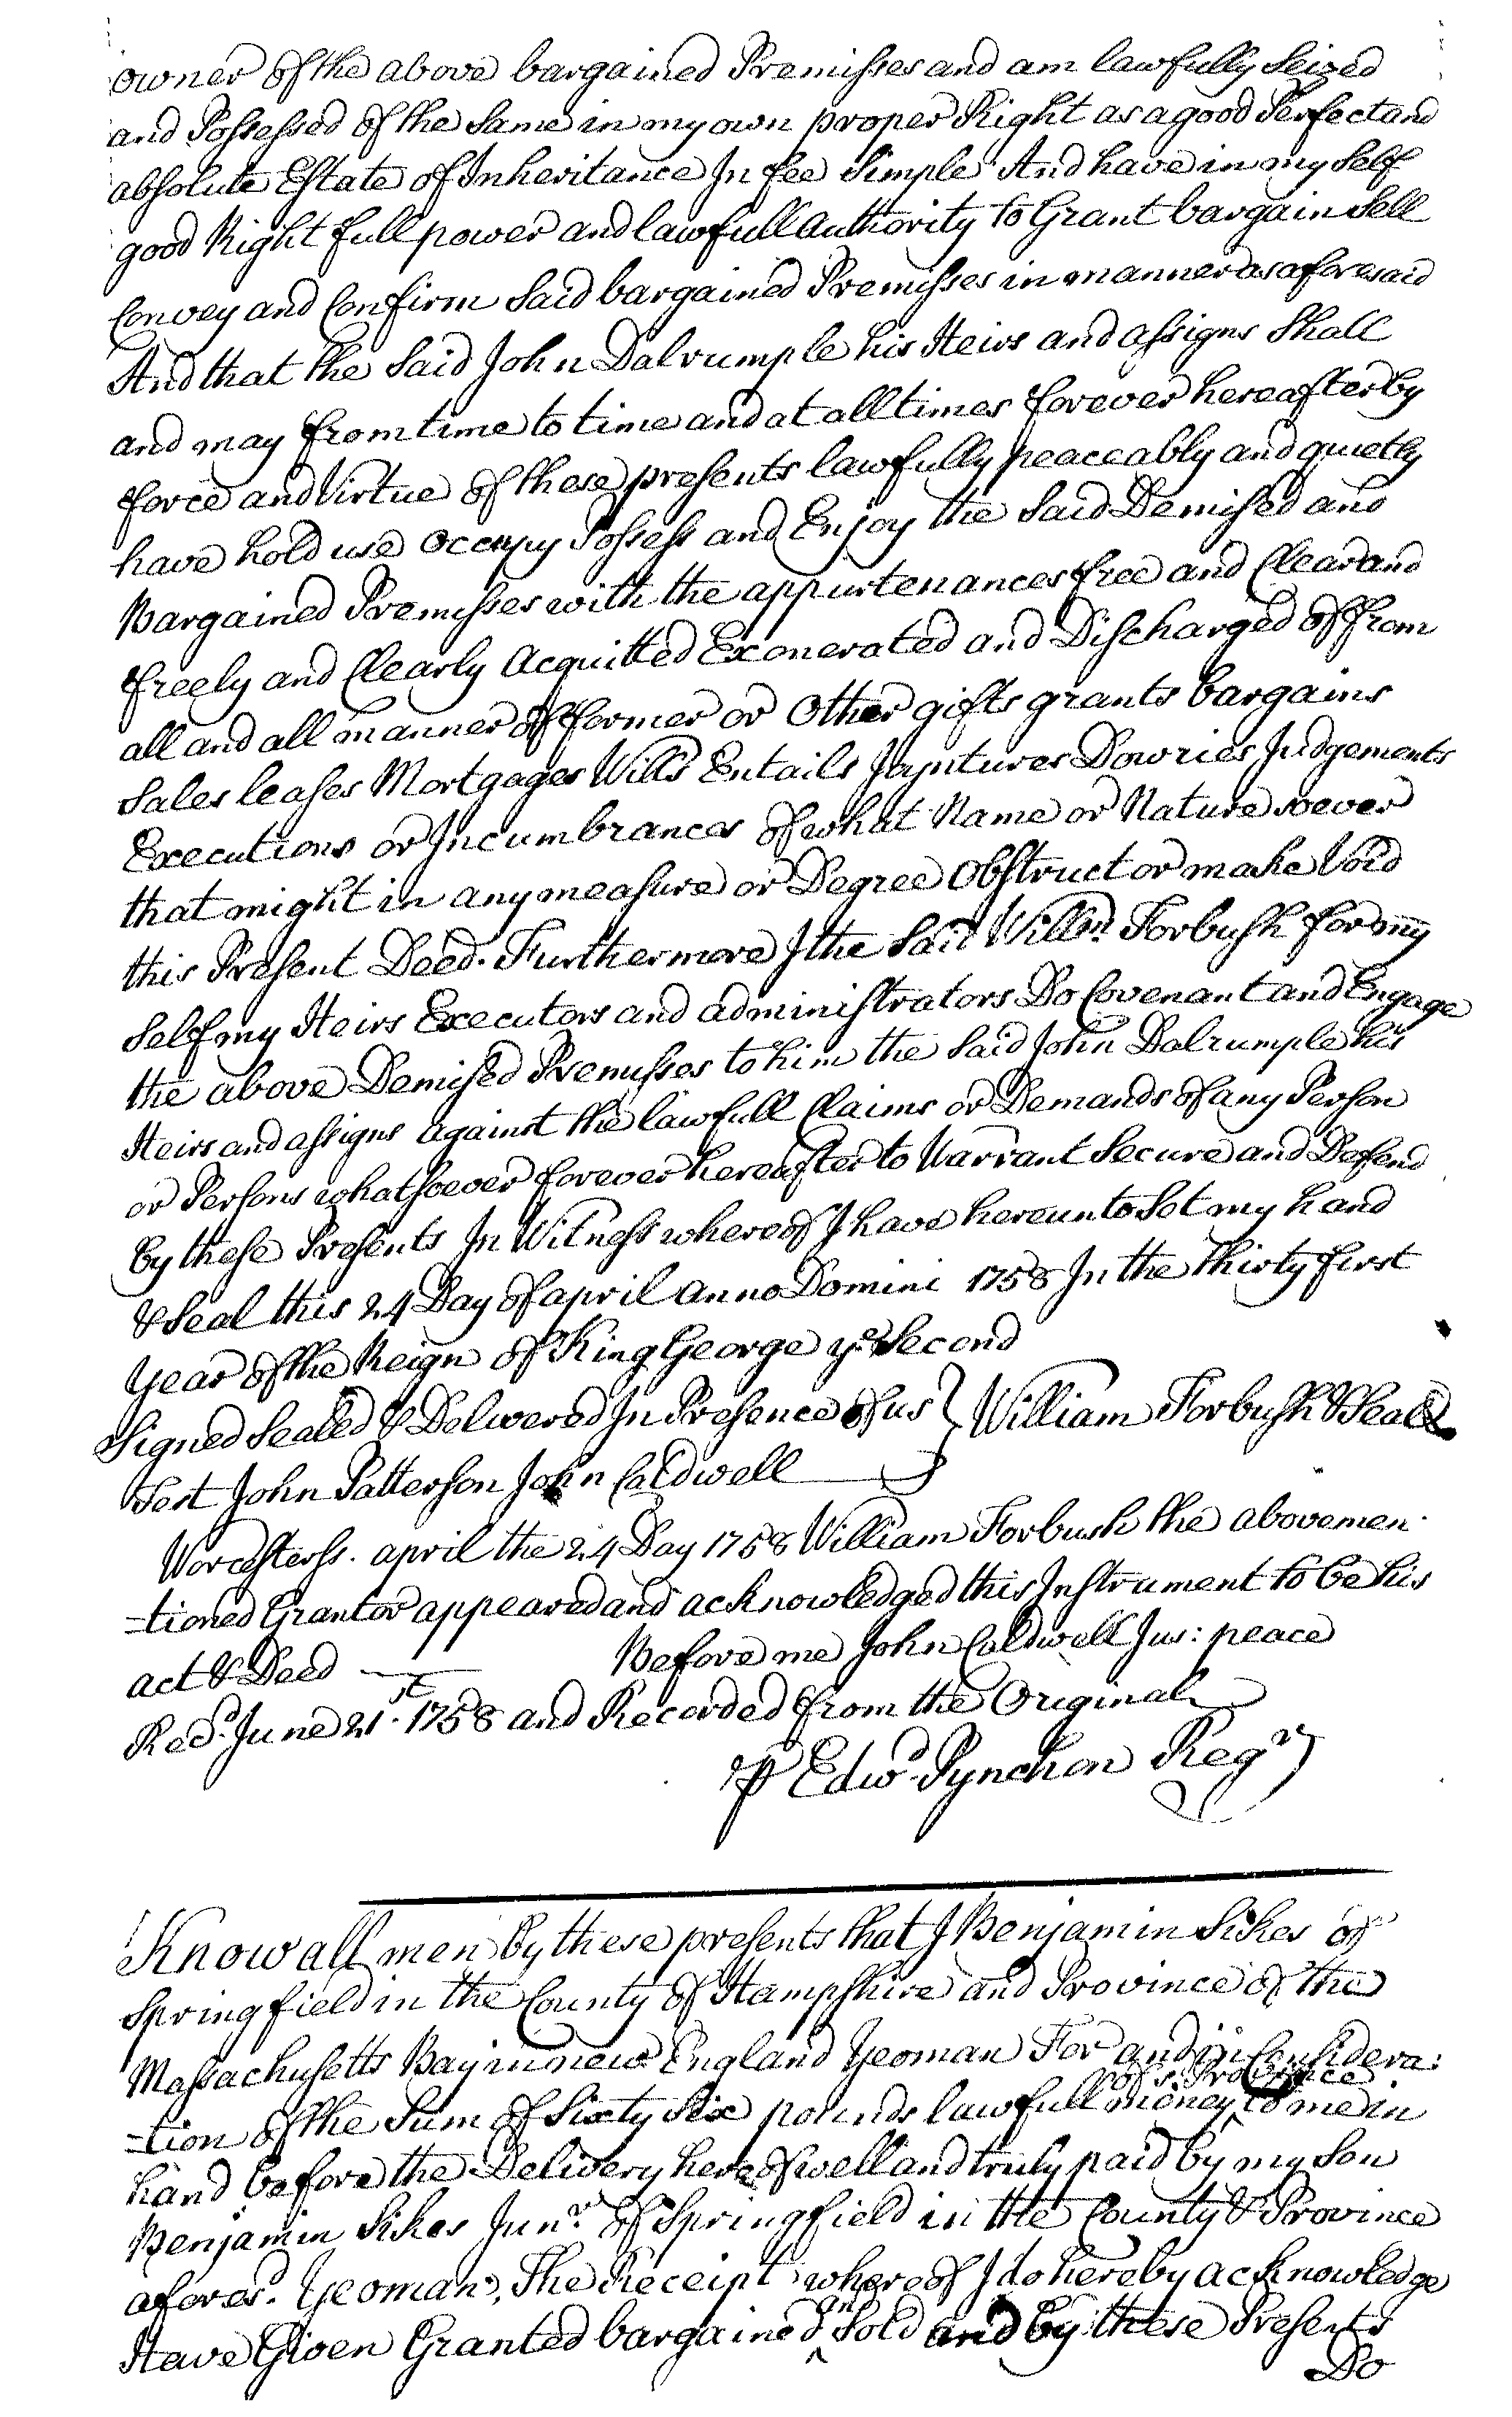 owner of the above bargained Premisses and am lawfully Seized
and Possessed of the Same in my own proper Right as a good Perfect and
absolute Estate of Inheritance In fee Simple And have in my Self
good Right full power and lawfull Authority to Grant bargain Sell
Convey and Confirm Said bargained Premisses in manner as aforesaid
And that the Said John Dalrumple his Heirs and assigns Shall
and may from time to time and at all times forever hereafter by
force and Virtue of these presents lawfully peaceably and quietly
have hold use Occupy Possess and Enjoy the Said Demised and
Bargained Premisses with the appurtenances free and Clear and
freely and Clearly Acquitted Exonerated and Discharged of from
all and all manner of former or Other gifts grants bargains
Sales leases Mortgages Wills Entails Joyntures Dowries Judgements
Executions or Incumbrances of what Name or Nature soever
that might in any measure or Degree Obstruct or make Void
this Present Deed. Furthermore I the Said Willm. Forbush for my
Self my Heirs Executors and administrators Do Covenant and Engage
the above Demised Premisses to him the Said John Dalrumple his
Heirs and assigns against the lawfull Claims or Demands of any Person
or Persons whatsoever forever hereafter to Warrant Secure and Defend
by these Presents In Witness whereof I have hereunto Set my hand
& Seal this 24 Day of april anno Domini 1758 In the thirty first
year of the Reign of King George ye Second
Signed Sealed & Delivered In Presence of us } William Forbush & Seal
Test John Patterson John Caldwell
Worcester ss. april the 24 Day 1758 William Forbush the abovemen
-tioned Grantor appeared and acknowledged this Instrument to be his
act & Deed Before me John Caldwell Jus: peace
Recd. June 21st. 1758 and Recorded from the Original
P Edwd. Pynchon Regr
Know all men by these presents that I Benjamin Sikes of
Springfield in the County of Hampshire and Province of the
Massachusetts Bay in new England Yeoman For and in Considera:
of sd. Province
-tion of the Sum of Sixty Six pounds lawfull money ^ to me in
hand before the Delivery hereof well and truly paid by my Son
Benjamin Sikes Junr. of Springfield in the County & Province
aforesd. Yeoman, The Receipt whereof I do hereby acknowledge
and
Have Given Granted bargained ^ Sold and by these Presents
Do